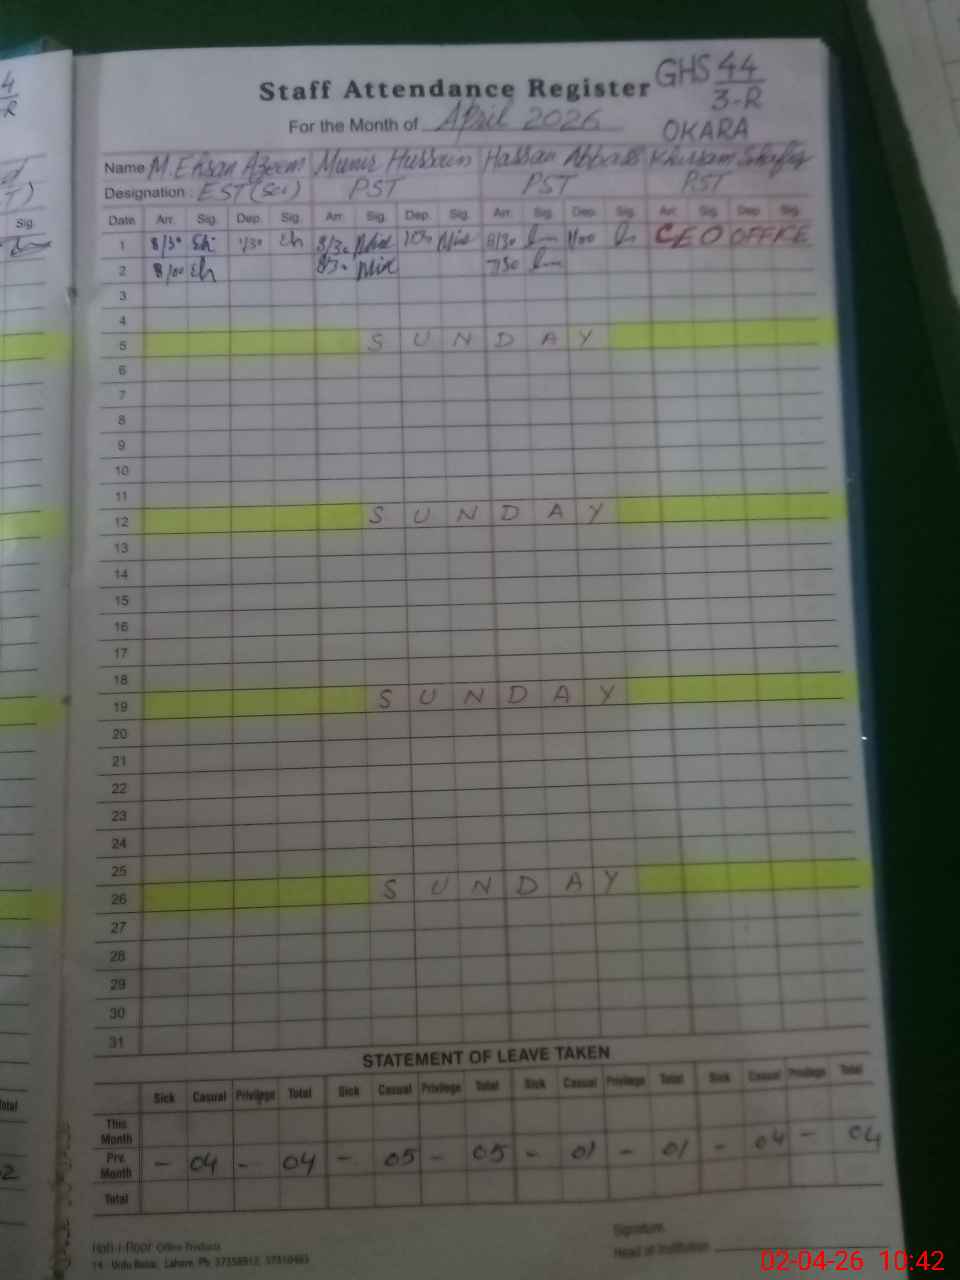 4
R
Staff Attendance Register GHS 44
3-R
For the Month of April 2026 OKARA
Name M. Ehsan Azeem Munir Hussain Hassan Abbas Khurram Shafiq
Designation : EST (Sci) PST PST PST
Sig.
Date Arr. Sig. Dep. Sig. Arr. Sig. Dep. Sig. Arr. Sig. Dep. Sig. Arr. Sig. Dep. Sig.
1 8/30 1/30 8/30 8/30 1/00 CEO OFFICE
2 8/00 8/30 7/30
3
4
5 SUNDAY
6
7
8
9
10
11
12 SUNDAY
13
14
15
16
17
18
19 SUNDAY
20
21
22
23
24
25
26 SUNDAY
27
28
29
30
31
STATEMENT OF LEAVE TAKEN
Sick Casual Privilege Total Sick Casual Privilege Total Sick Casual Privilege Total Sick Casual Privilege Total
This Month
Pre. Month - 04 - 04 - 05 - 05 - 01 - 01 - 04 - 04
Total
Signature
Head of Institution
Office Products
14 - Urdu Bazar, Lahore. Ph: 37358912, 37310463
02-04-26 10:42